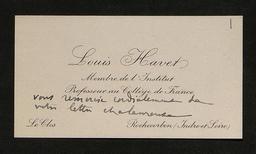 Louis Havet
Membre de l'Institut
Professeur au Collège de France
vous remercie cordialement de
votre lettre chaleureuse
Le Clos Rochecorbon (Indre et Loire)